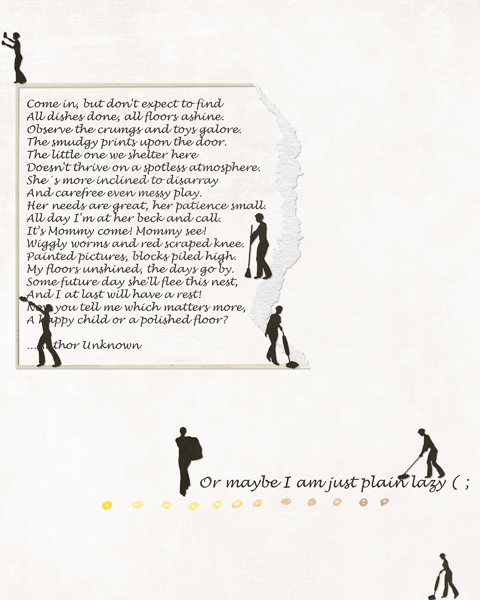 Come in, but don't expect to find
All dishes done, all floors ashine.
Observe the crumgs and toys galore.
The smudgy prints upon the door.
The little one we shelter here
Doesn't thrive on a spotless atmosphere.
She´s more inclined to disarray
And carefree even messy play.
Her needs are great, her patience small.
All day I'm at her beck and call.
It's Mommy come! Mommy see!
Wiggly worms and red scraped knee.
Painted pictures, blocks piled high.
My floors unshined, the days go by.
Some future day she'll flee this nest,
And I at last will have a rest!
Now you tell me which matters more,
A happy child or a polished floor?
...Author Unknown
Or maybe I am just plain lazy ( ;